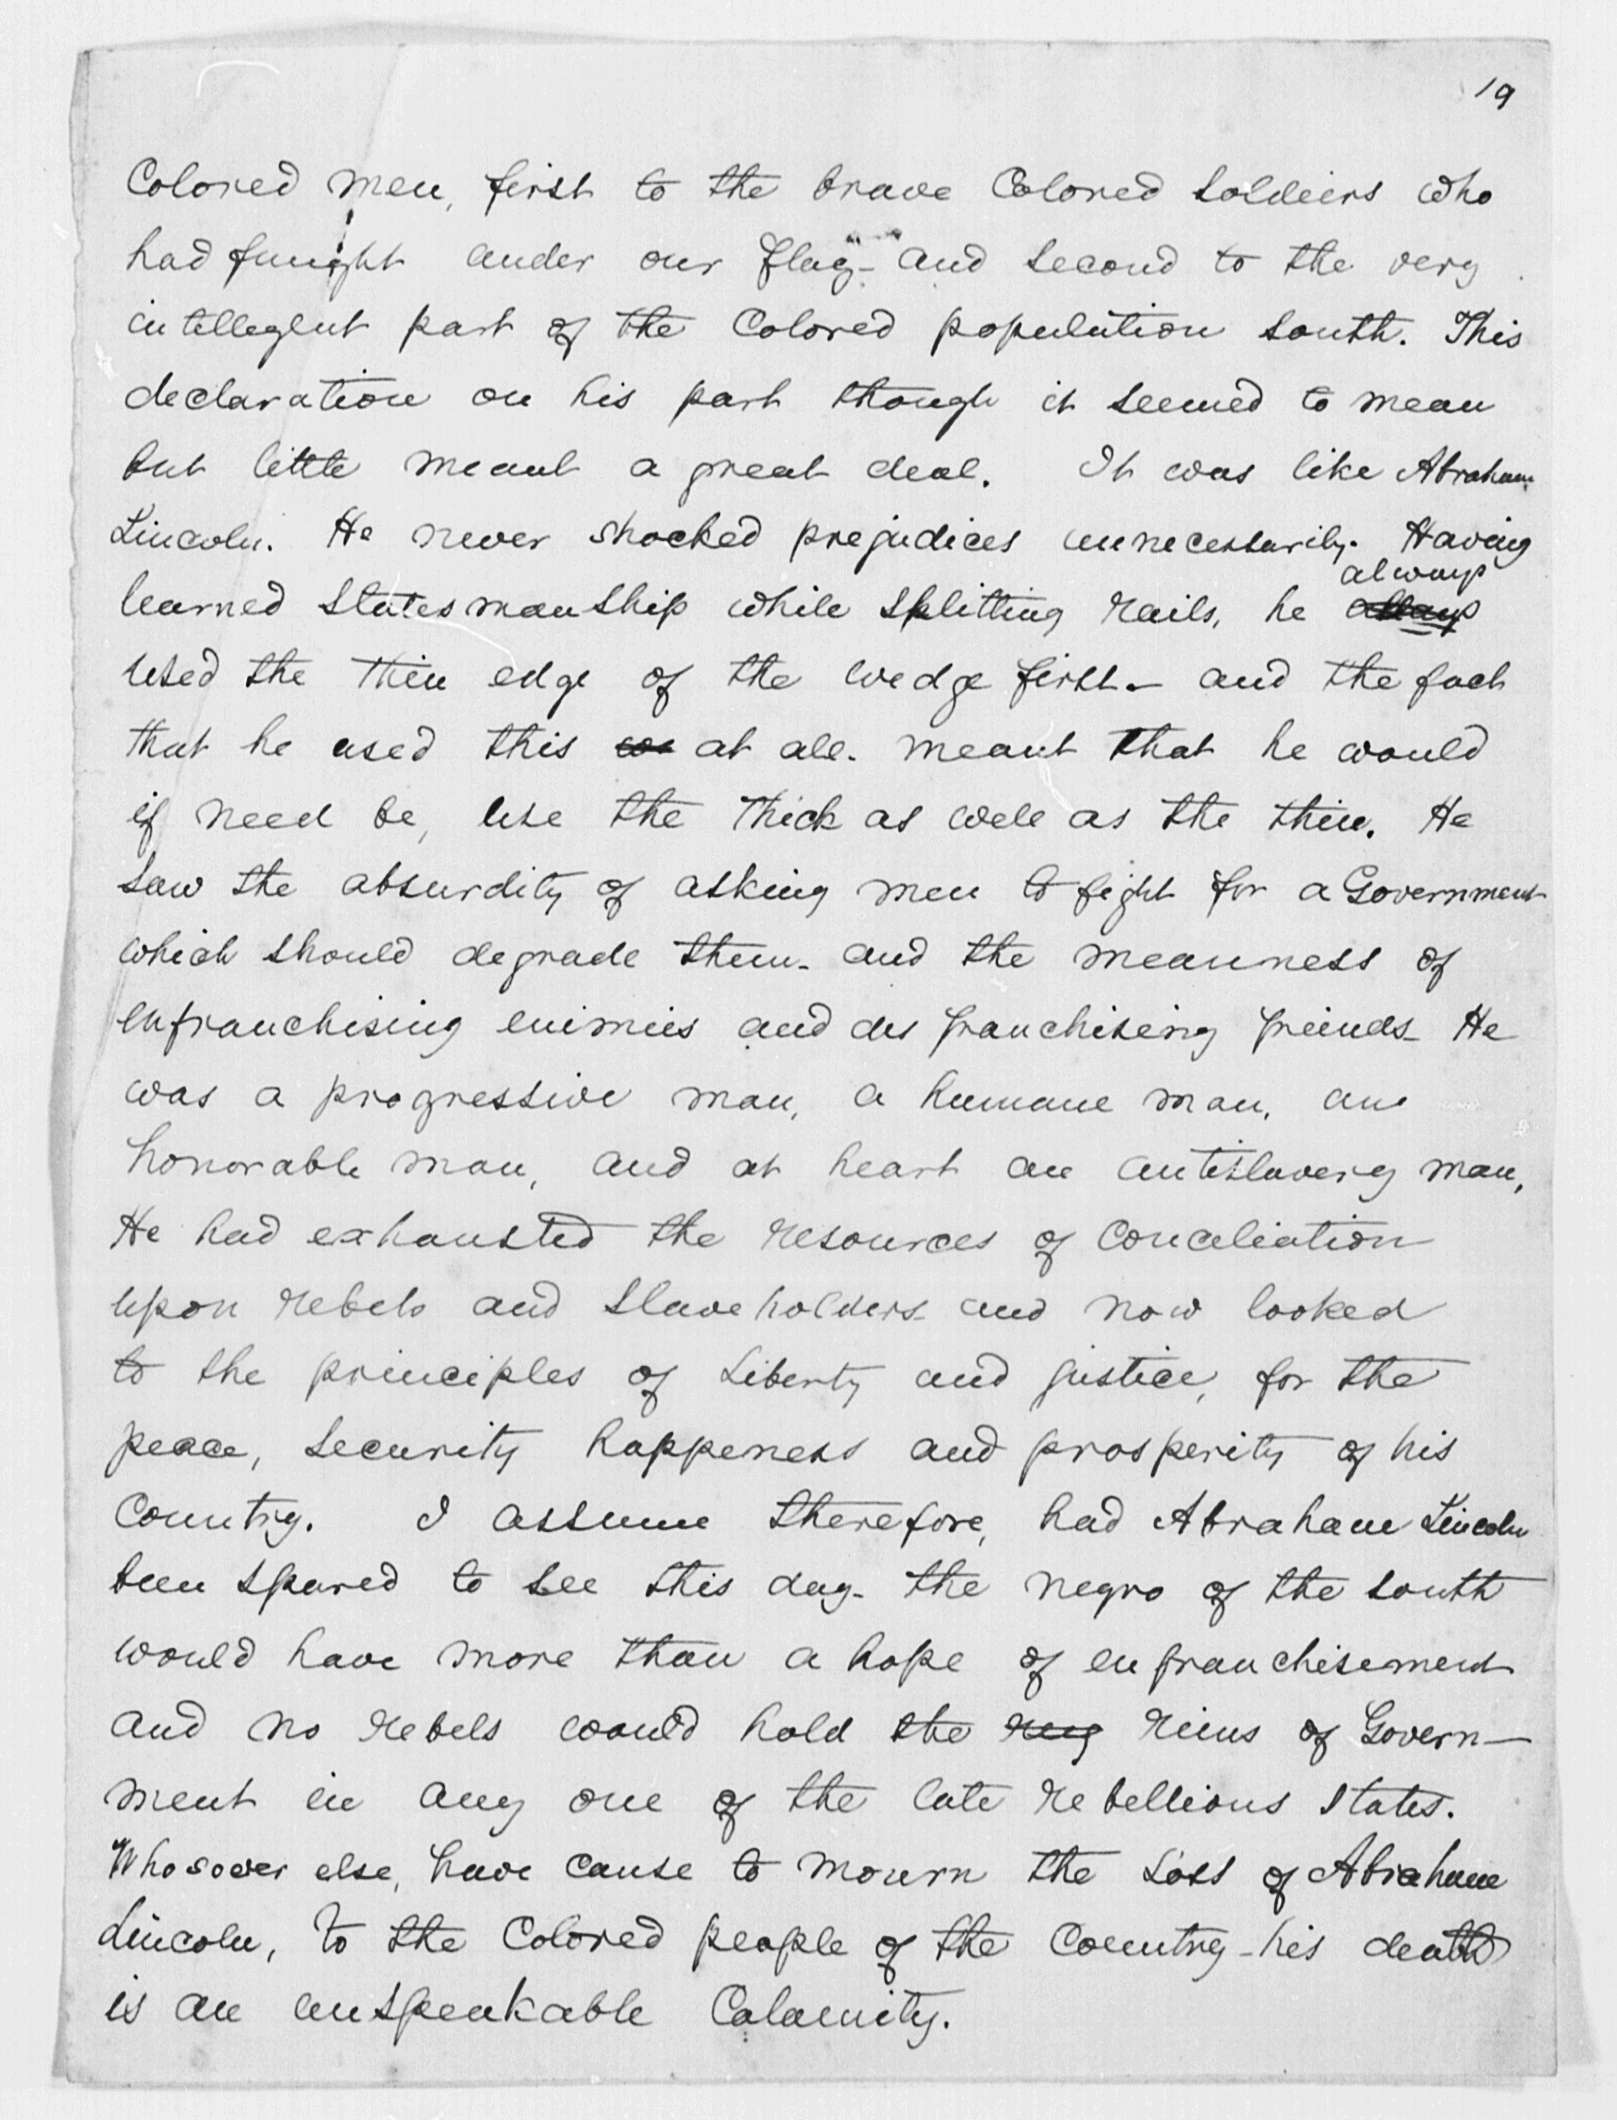 19
Colored men, first to the brave Colored Soldiers who
had fought under our flag - and second to the very
intellegent part of the Colored population South. This
declaration on his part though it seemed to mean
but little meant a great deal. It was like Abraham
Lincoln. He never shocked prejudices unnecessarily. Having
always
learned Statesmanship while Splitting rails, he allays
used the thin edge of the wedge first - and the fact
that he used this at all. meant that he would
if need be, use the thick as well as the thin. He
saw the absurdity of asking men to fight for a Government
which should degrade them - and the meanness of
enfranchising enimies and disfranchising freinds - He
was a progressive man, a humane man, an
honorable man, and at heart an antislavery man,
He had exhausted the resources of conciliation
upon rebels and Slaveholders - and now looked
to the principles of Liberty and justice, for the
peace, Security happeness and prosperity of his
Country. I assume therefore, had Abraham Lincoln
been spared to see this day - the negro of the South
would have more than a hope of enfranchisement
and no rebels would hold the reing reins of Govern-
ment in any one of the late rebellious states.
Whosoever else, have cause to mourn the loss of Abraham
Lincoln, to the Colored people of the Country - his death
is an unspeakable Calamity.